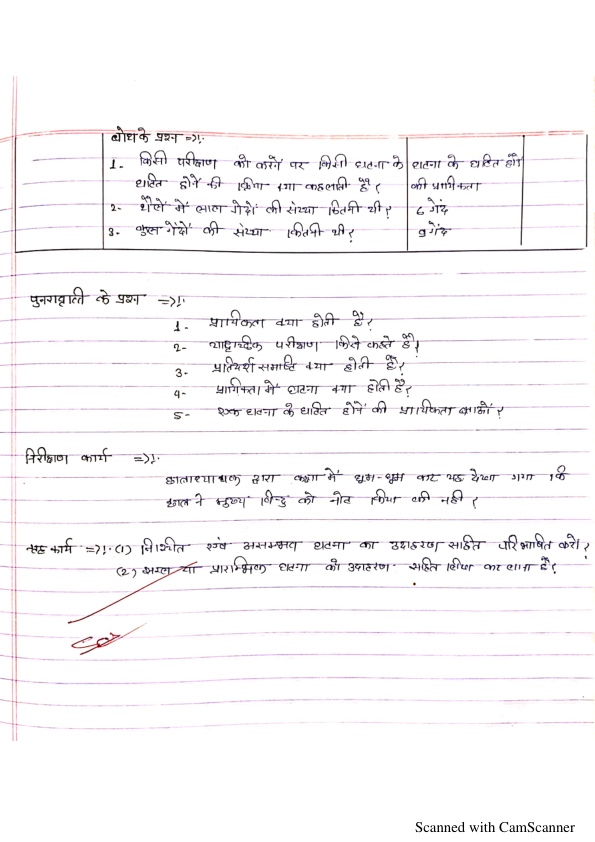 बोध के प्रश्न =>!.
1- किसी परीक्षण को करने पर किसी घटना के घटना के घटित होने
घटित होने की क्रिया क्या कहलाती है? की प्रायिकता
2- थैले में लाल गेंदों की संख्या कितनी थी? 6 गेंद
3- कुल गेंदों की संख्या कितनी थी? 9 गेंद
पुनरावृत्ति के प्रश्न =>!.
1- प्रायिकता क्या होती है?
2- यादृच्छिक परीक्षण किसे कहते हैं?
3- प्रतिदर्श समष्टि क्या होती है?
4- प्रायिकता में घटना क्या होती है?
5- एक घटना के घटित होने की प्रायिकता बताओ?
निरीक्षण कार्य =>!.
छात्राध्यापक द्वारा कक्षा में घूम-घूम कर यह देखा गया कि
छात्र ने मुख्य बिन्दु को नोट किया की नही?
गृह कार्य =>!. (1) निश्चित एवं असम्भव घटना का उदाहरण सहित परिभाषित करो?
(2) सरल या प्रारम्भिक घटना को उदाहरण सहित लिख कर लाना है?
Scanned with CamScanner